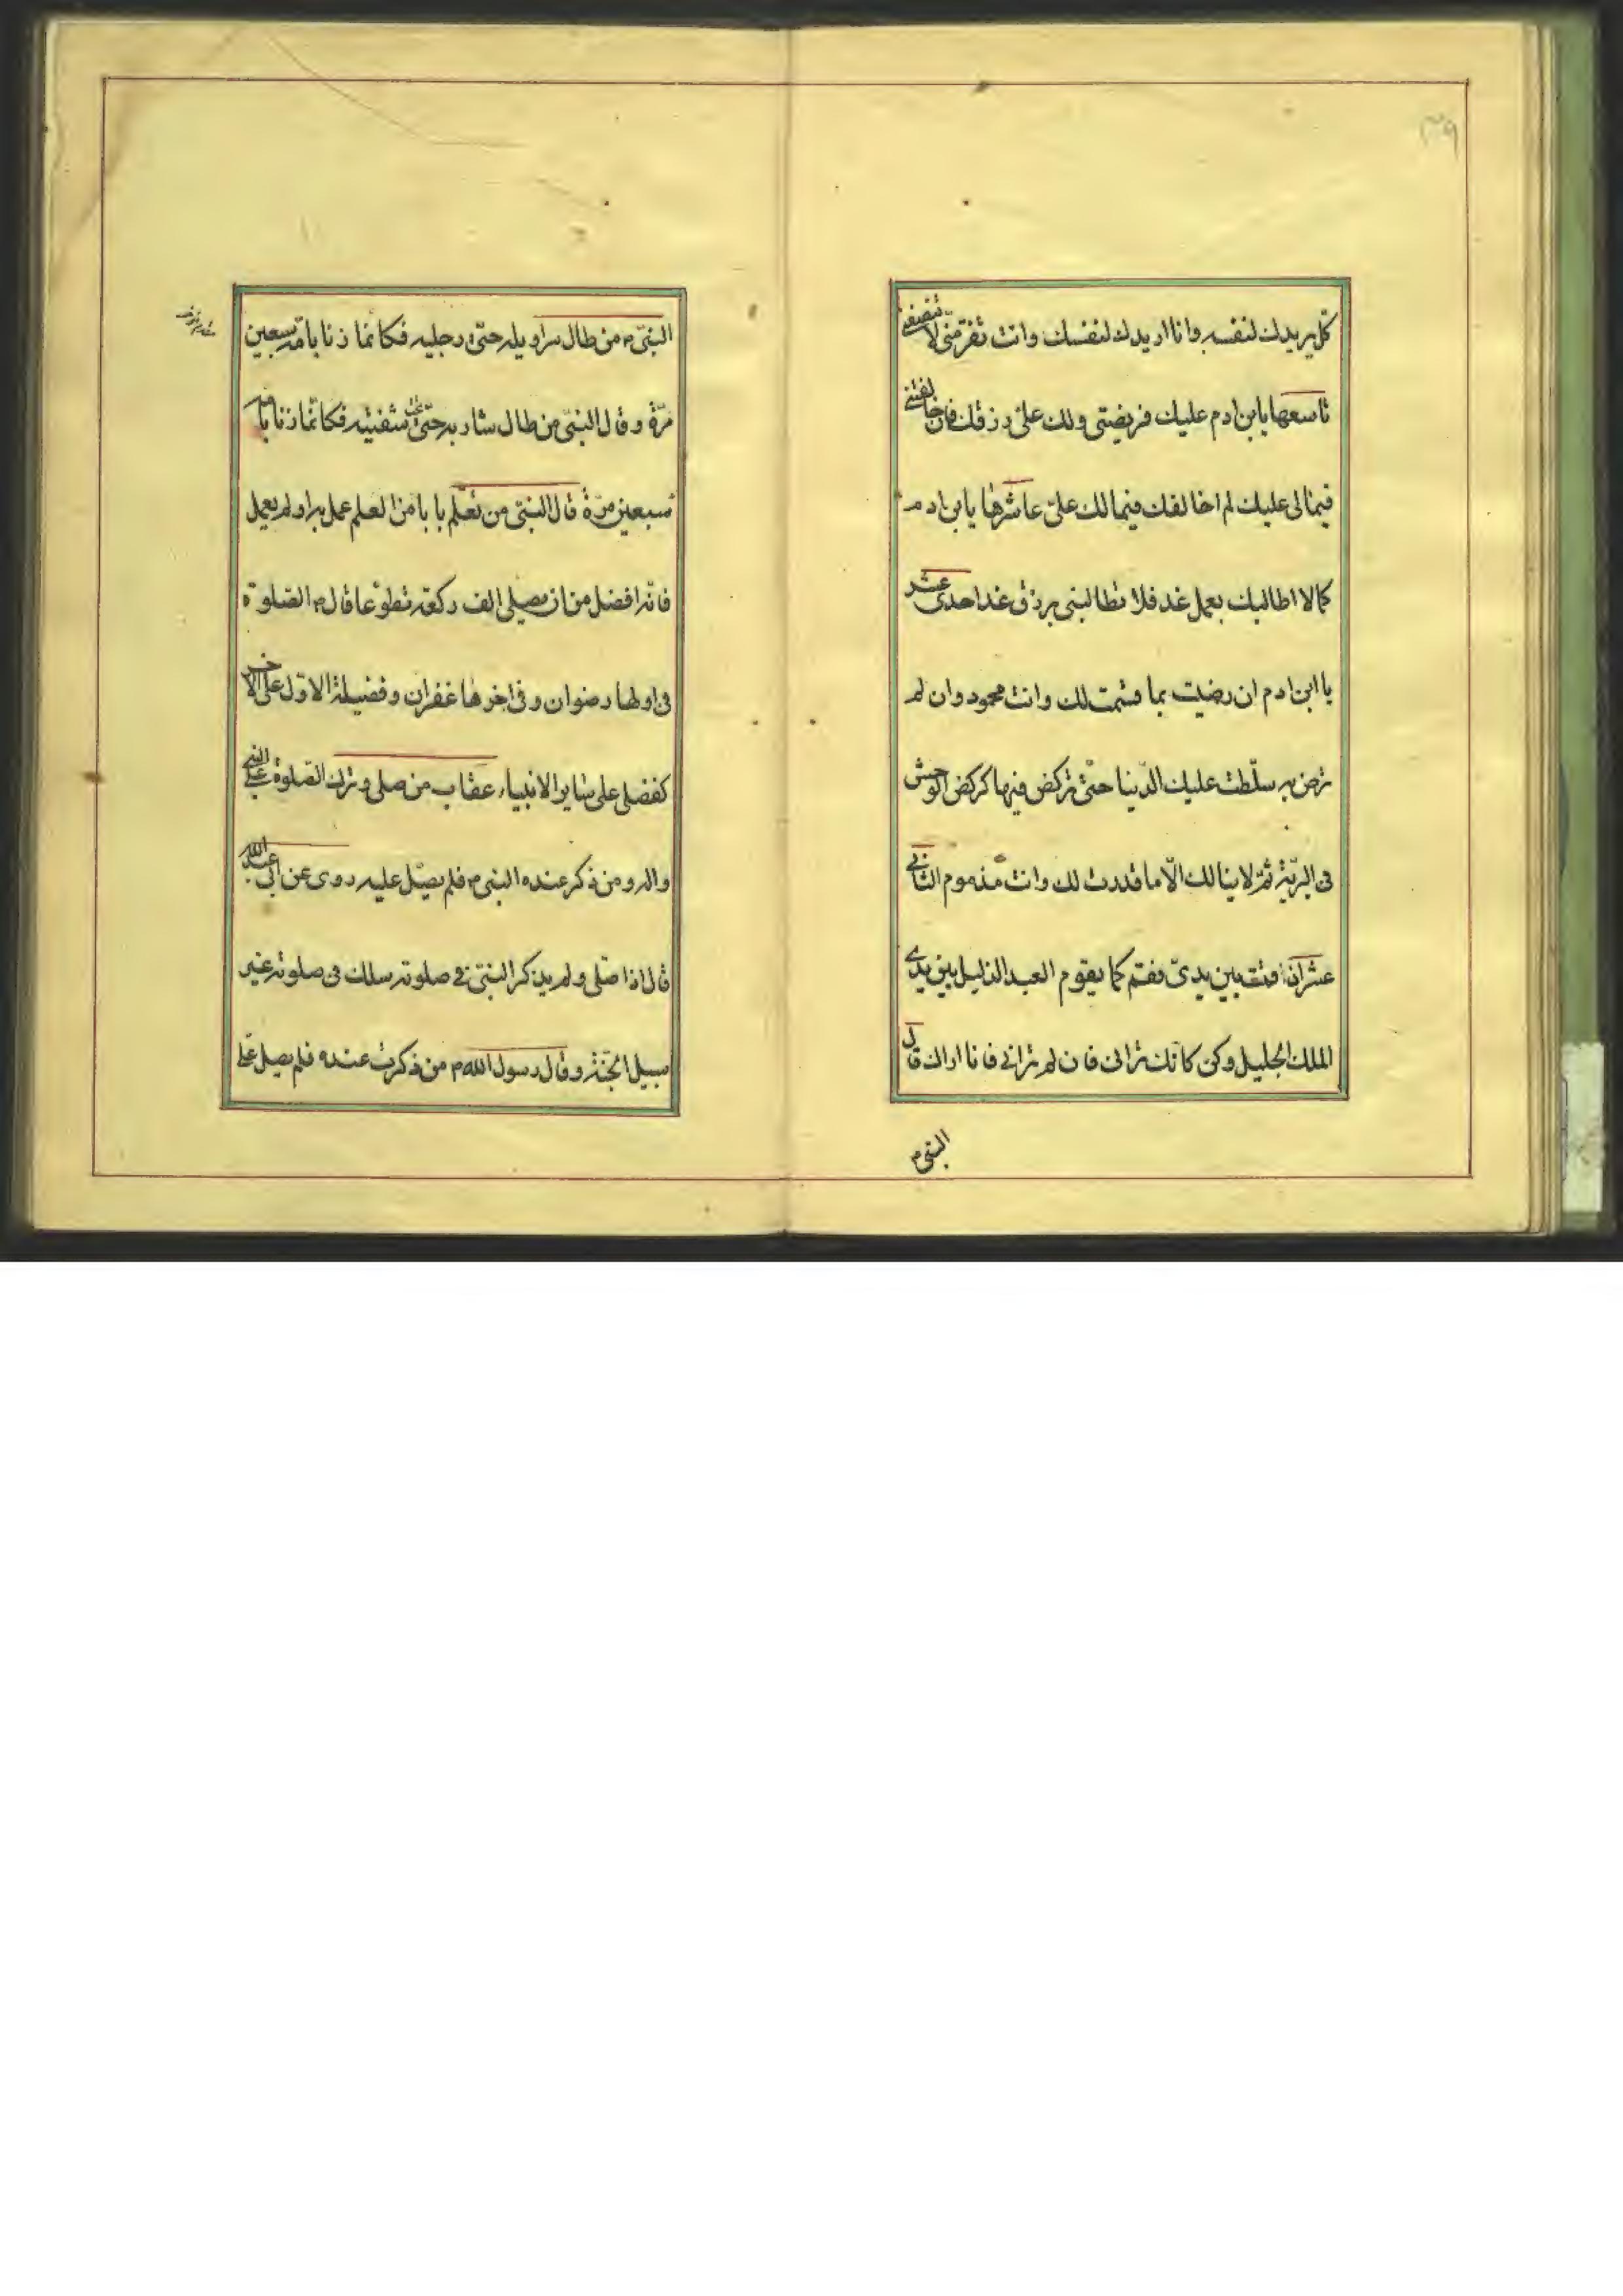 ٣٩
كل يريدك لنفسه وانا اريدك لنفسك وانت تفرمنى لا تنصفنى
تاسعها يا بن ادم عليك فريضتى ولك على رزقك فان خالفتنى
فيما لى عليك لم اخالفك فيما لك على عاشرها يا بن ادم
كما لا اطالبك بعمل غد فلا تطالبنى برزق غد احدى عشر
يا ابن ادم ان رضيت بما قسمت لك وانت محمود وان لم
ترض به سلّطت عليك الدّنيا حتّى تركض فيها كركض الوحش
فى البريّة ثمّ لا ينالك الّا ما قدرت لك وانت مذموم الثانى
عشر اذا قمت بين يدىّ فقم كما يقوم العبد الذليل بين يدى
الملك الجليل وكن كانّك ترانى فان لم ترانى فانا اراك قال
النبى م
النبىّ م من طال سراويله حتى رجليه فكانما زنا بامّه سبعين
مرّة وقال النبىّ من طال شاربه حتىّ شفتيه فكانّما زنا بامه
سبعين مرّة قال النبىّ من تعلّم بابا من العلم عمل به او لم يعمل
فانه افضل من ان يصلى الف ركعة تطوّعا قال م الصلوة
فى اولها رضوان وفى اخرها غفران وفضيلة الاوّل على الاخر
كفضلى على ساير الانبياء عقاب من صلى وترك الصّلوة على النبى
واله ومن ذكر عنده النبى م فلم يصلّ عليه روى عن ابى عبد الله
قال اذا صلّى ولم يذكر النبىّ فى صلوته سلك فى صلوته غير
سبيل الجنّة وقال رسول الله م من ذكرت عنده فلم يصل على